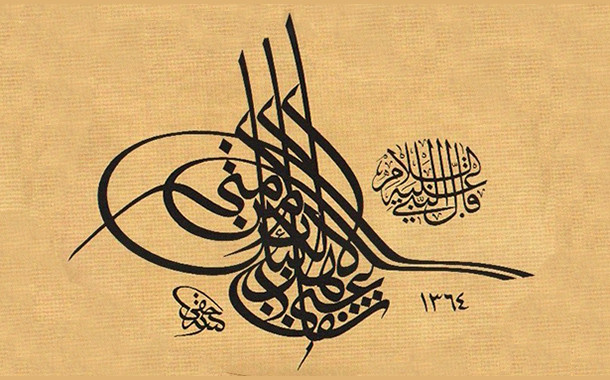 قال النبي عليه السلام
شفاعتي لأهل الكبائر من أمتي
١٣٦٤
كتبه حقي